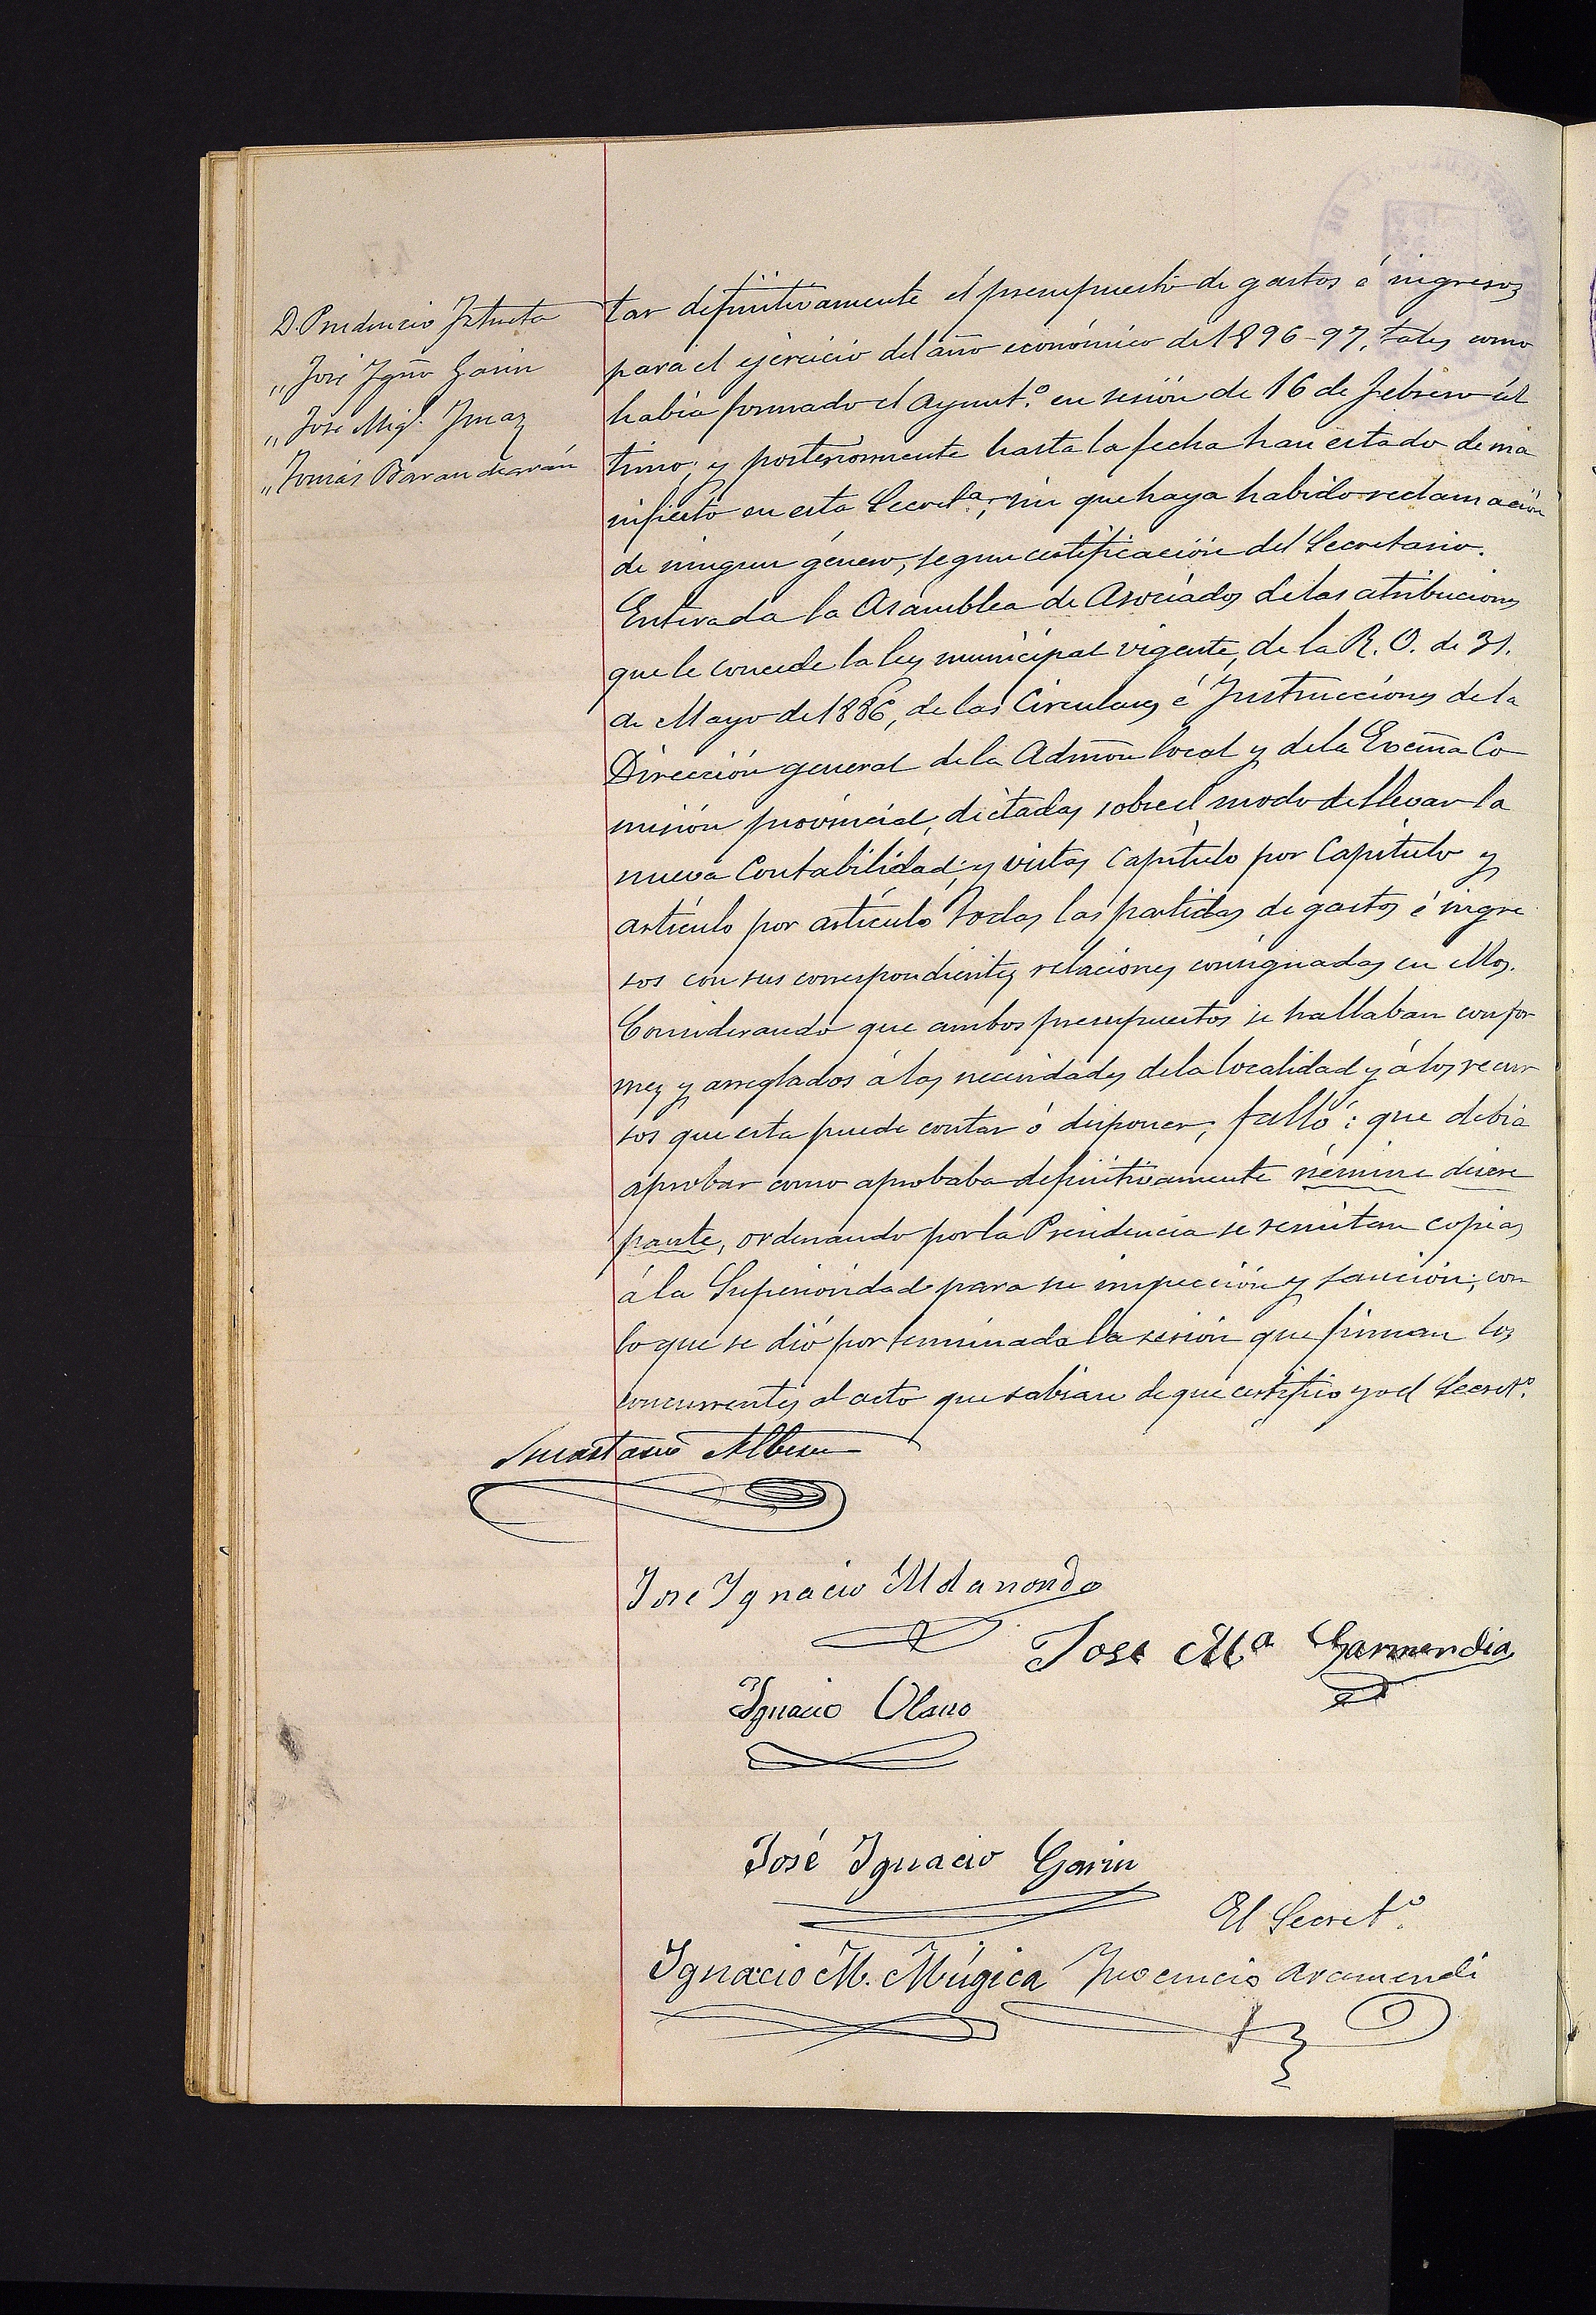 D. Prudencio Iztueta
„ José Igño Garin
„ José Migl. Ymaz
„ Tomás Barandiarán
tar definitivamente el presupuesto de gastos é ingresos
para el ejercicio del año económico de 1896-97, tales como
había formado el Ayunt.º en sesión de 16 de Febrero úl
timo; y posteriormente hasta la fecha han estado de ma
nifiesto en esta Secretª; sin que haya habido reclamación
de ningun género, segun certificación del Secretario.
Enterada la Asamblea de Asociados de las atribuciones
que le concede la ley municipal vigente, de la R. O. de 31.
de Mayo de 1886, de las Circulares é Instrucciones de la
Dirección general de la Admōn local y de la Excma Co
misión provincial, dictadas sobre el modo de llevar la
nueva Contabilidad; y vistas Capítulo por Capítulo y
artículo por artículo todas las partidas de gastos é ingre
sos con sus correspondientes relaciones consignadas en ellos.
Considerando que ambos presupuestos se hallaban confor
mes y arreglados á las necesidades de la localidad y á los recur
sos que esta puede contar ó disponer; falló: que debia
aprobar como aprobaba definitivamente némine discre
pante, ordenando por la Presidencia se remitan copias
á la Superioridad para su inspección y sanción; con
lo que se dió por terminada la sesión que firman los
concurrentes al acto que sabian de que certifico yo el Secretº.
Anastasio Alberdi
José Ignacio Aldanondo
José Mª Garmendia
Ignacio Olano
José Ignacio Garin
El Secretº.
Ignacio M. Múgica
Inocencio Aramendi